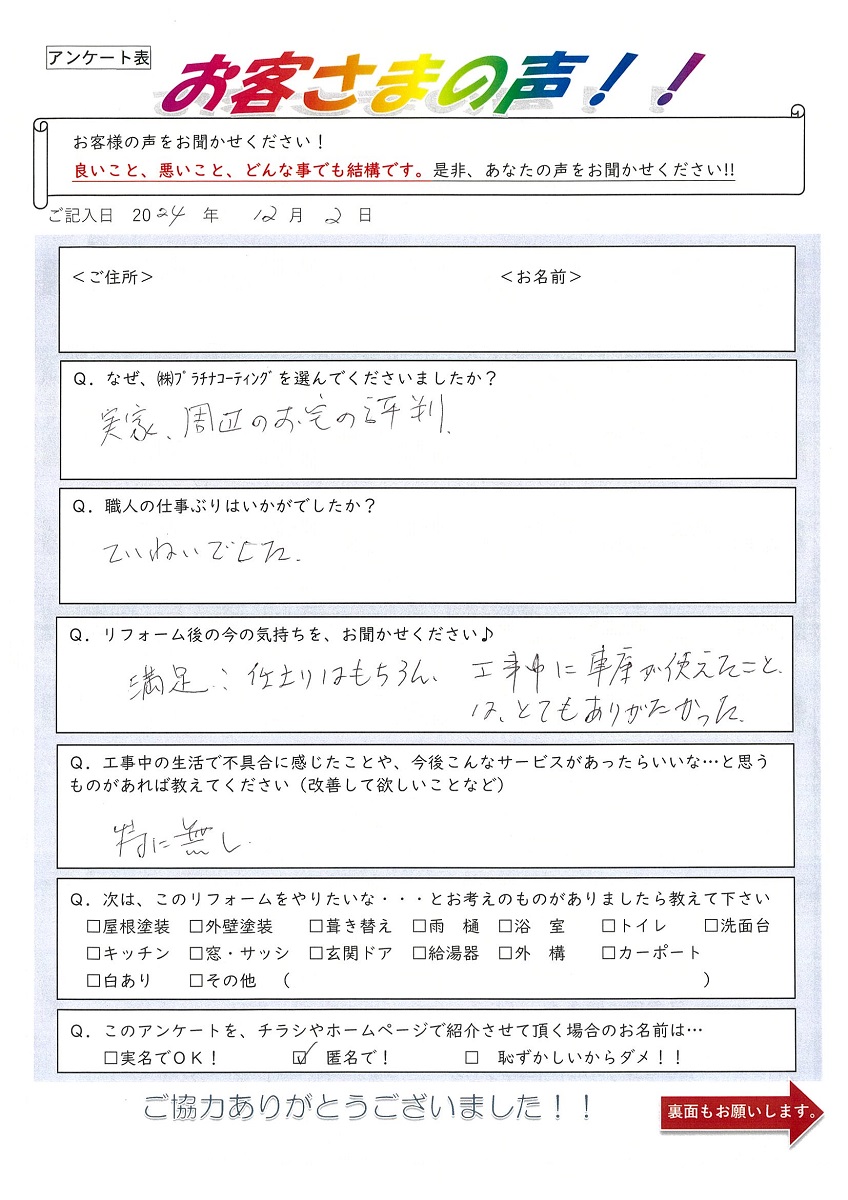 アンケート表
お客さまの声！！
お客様の声をお聞かせください！
良いこと、悪いこと、どんな事でも結構です。是非、あなたの声をお聞かせください!!
ご記入日 2024 年 12 月 2 日
＜ご住所＞ ＜お名前＞
Ｑ．なぜ、㈱ﾌﾟﾗﾁﾅｺｰﾃｨﾝｸﾞを選んでくださいましたか？
実家、周辺のお宅の評判.
Ｑ．職人の仕事ぶりはいかがでしたか？
ていねいでした.
Ｑ．リフォーム後の今の気持ちを、お聞かせください♪
満足：仕上りはもちろん、工事中に車庫が使えたこと
は、とてもありがたかった.
Ｑ．工事中の生活で不具合に感じたことや、今後こんなサービスがあったらいいな…と思う
ものがあれば教えてください（改善して欲しいことなど）
特に無し.
Ｑ．次は、このリフォームをやりたいな・・・とお考えのものがありましたら教えて下さい
□屋根塗装 □外壁塗装 □葺き替え □雨 樋 □浴 室 □トイレ □洗面台
□キッチン □窓・サッシ □玄関ドア □給湯器 □外 構 □カーポート
□白あり □その他 （ ）
Ｑ．このアンケートを、チラシやホームページで紹介させて頂く場合のお名前は…
□実名でＯＫ！ ☑ 匿名で！ □ 恥ずかしいからダメ！！
ご協力ありがとうございました！！
裏面もお願いします。